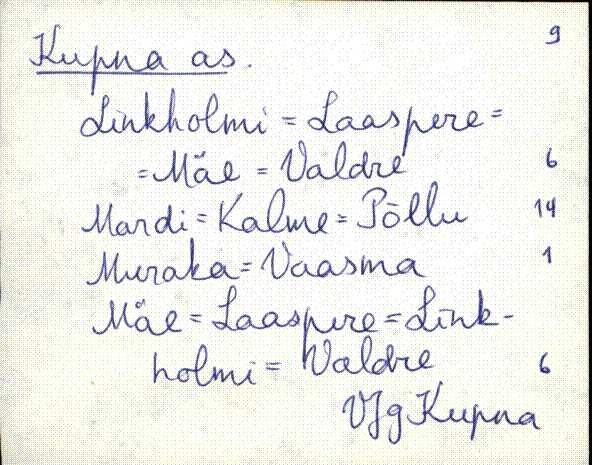 9
Kupna as.
Linkholmi = Laaspere =
= Mäe = Valdre 6
Mardi = Kalme = Põllu 14
Muraka = Vaasma 1
Mäe = Laaspere = Link-
holmi = Valdre 6
VJg Kupna